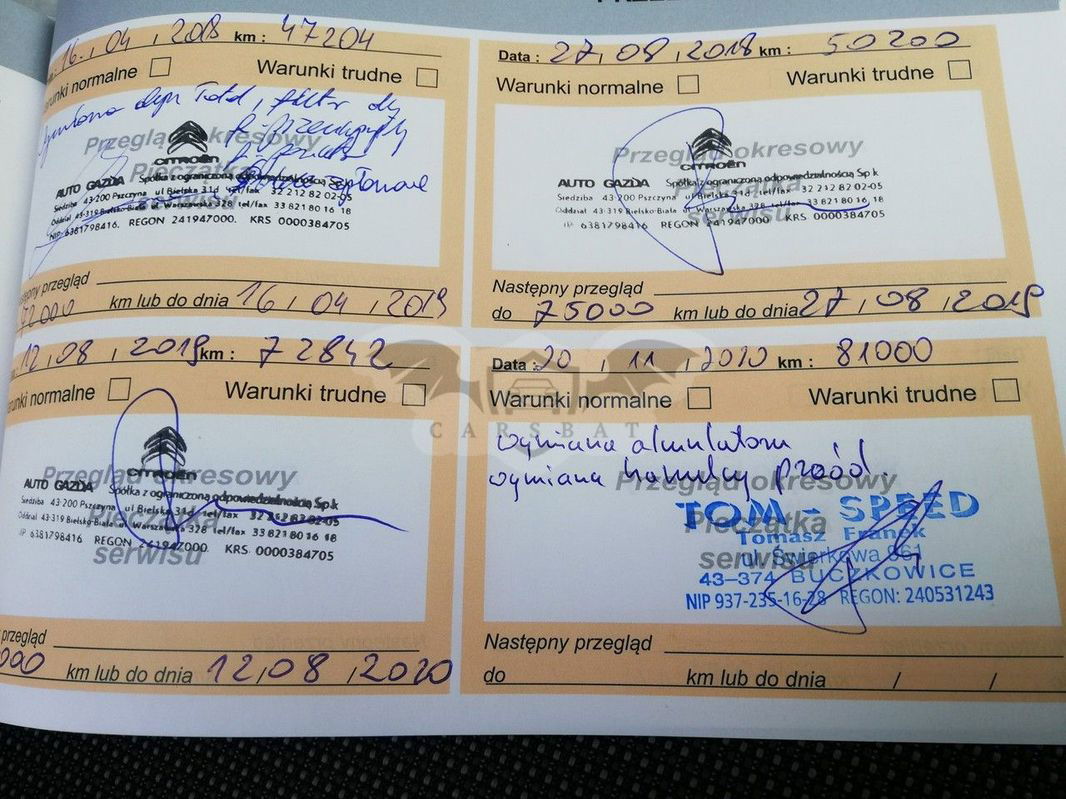 16. 04, 2018 km : 47204
Warunki normalne Warunki trudne
Przegląd okresowy
Pieczątka
CITROËN
AUTO GAZDA Spółka z ograniczoną odpowiedzialnością Sp k
Siedziba 43-200 Pszczyna ul Bielska 31d tel/fax 32 212 82 02-05
Oddział 43-319 Bielsko-Biała ul Warszawska 328 tel/fax 33 821 80 16 18
NIP 6381798416. REGON 241947000. KRS 0000384705
przegląd
km lub do dnia 16, 04, 2019
Data : 27, 08, 2018 km : 50200
Warunki normalne Warunki trudne
Przegląd okresowy
CITROËN
Pieczątka
AUTO GAZDA Spółka z ograniczoną odpowiedzialnością Sp k
Siedziba 43-200 Pszczyna ul Bielska 31d tel/fax 32 212 82 02-05
Oddział 43-319 Bielsko-Biała ul Warszawska 328 tel/fax 33 821 80 16 18
serwisu
IP 6381798416 REGON 241947000 KRS 0000384705
Następny przegląd
do 75000 km lub do dnia 27, 08, 2019
12, 08, 2019 km : 72842
Warunki normalne Warunki trudne
Przegląd okresowy
CITROËN
AUTO GAZDA Spółka z ograniczoną odpowiedzialnością Sp.k
Siedziba 43-200 Pszczyna ul Bielska 31d tel/fax 32 212 82 02-05
Pieczątka
Oddział 43-319 Bielsko-Biała ul Warszawska 328 tel/fax 33 821 80 16 18
IP 6381798416 REGON 241947000. KRS 0000384705
serwisu
przegląd
000 km lub do dnia 12, 08, 2020
Data : 20, 11, 2020 km : 81000
Warunki normalne Warunki trudne
CARSBAT
wymiana akumulatora
wymiana hamulcy przód.
Przegląd okresowy
TOM - SPEED
Pieczątka
Tomasz Franek
serwisu
ul. Świerkowa 961
43-374 BUCZKOWICE
NIP 937-235-16-28 REGON: 240531243
Następny przegląd
do km lub do dnia / /